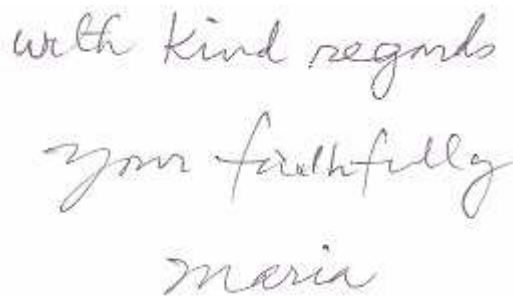 with kind regards
your faithfully
maria